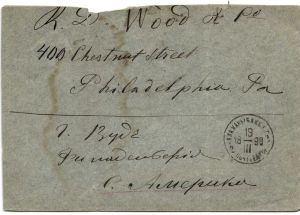 R. D. Wood & Co
400 Chestnut Street
Philadelphia Pa
г. Вудъ
Филаделфія
С. Америка
19
18 98
III